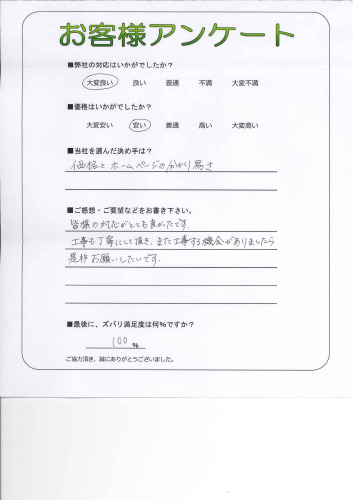 お客様アンケート
■弊社の対応はいかがでしたか?
大変良い 良い 普通 不満 大変不満
■価格はいかがでしたか?
大変安い 安い 普通 高い 大変高い
■当社を選んだ決め手は?
価格とホームページの分かり易さ
■ご感想・ご要望などをお書き下さい。
皆様の対応がとても良かったです。
工事も丁寧にして頂き、また工事する機会がありましたら
是非お願いしたいです。
■最後に、ズバリ満足度は何%ですか?
100 %
ご協力頂き、誠にありがとうございました。